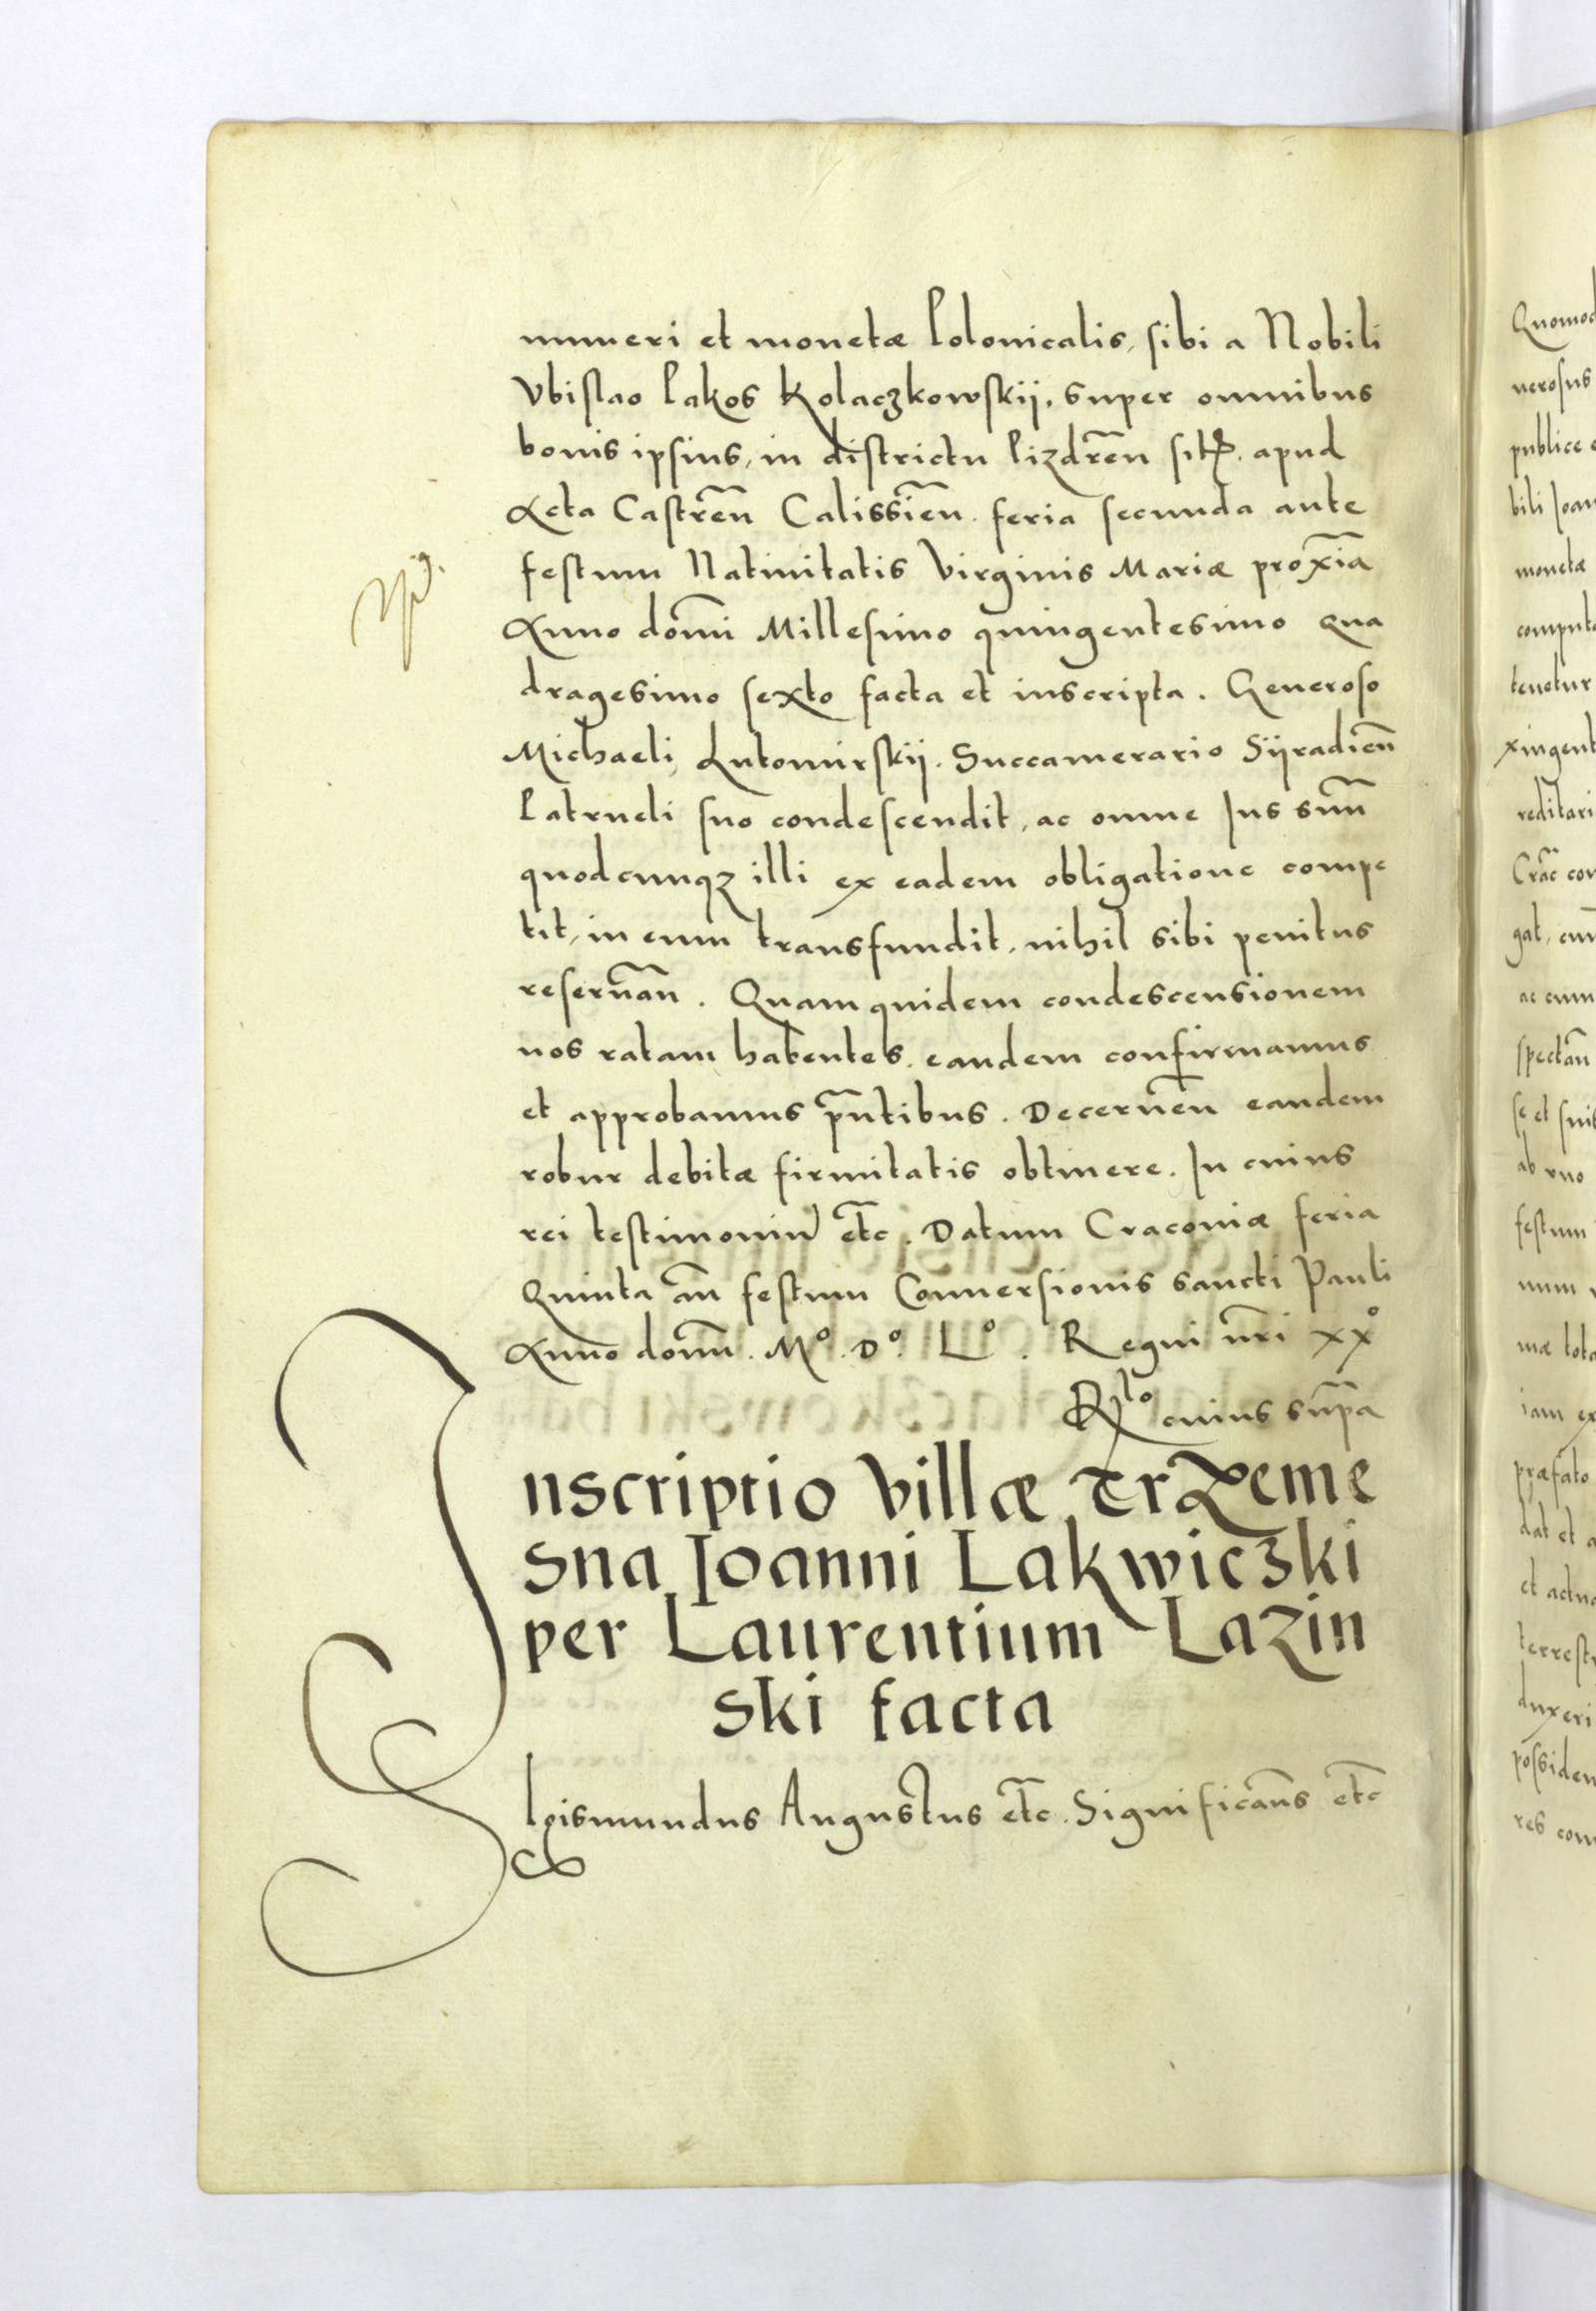 numeri et monetæ Polonicalis, sibi a Nobili
Vbislao Pakos Kolaczkowskij. super omnibus
bonis ipsius, in districtu Pizdren̄ sit. apud
Acta Castren̄ Calissien̄. feria secunda ante
festum Natiuitatis Virginis Mariæ proxīa
Anno domi Millesimo quingentesimo qua
dragesimo sexto facta et inscripta. Generoso
Michaeli Lutomirskij. Succamerario Sijradien̄
Patrueli suo condescendit, ac omne Ius suū
quodcunqz illi ex eadem obligatione compe
tit, in eum transfundit, nihil sibi penitus
reseruan̄. Quam quidem condescensionem
nos ratam habentes. eandem confirmamus
et approbamus pñtibus. Decernen̄ eandem
robur debitæ firmitatis obtinere. In cuius
rei testimoniū etc. Datum Cracouiæ feria
Quinta an̄ festum Conuersionis sancti Pauli
Anno domī. Mº. Dº. Lº. Regni nr̄i xxº
Rlº cuius supra
Inscriptio Villæ Trzeme
sna Ioanni Lakwiczski
per Laurentium Lazin
ski facta
Sigismundus Augustus etc. Significan̄s etc
Quomod
nerosus
publice
bili Ioan
monetæ
computa
tenetur
xingent
reditari
Crac̄ con
gat, cum
ac cum
spectan̄
se et suis
ab vno
festum
num
mæ tota
iam ex
præfato
dat et a
et actua
terrestr
duxeri
possiden
res com